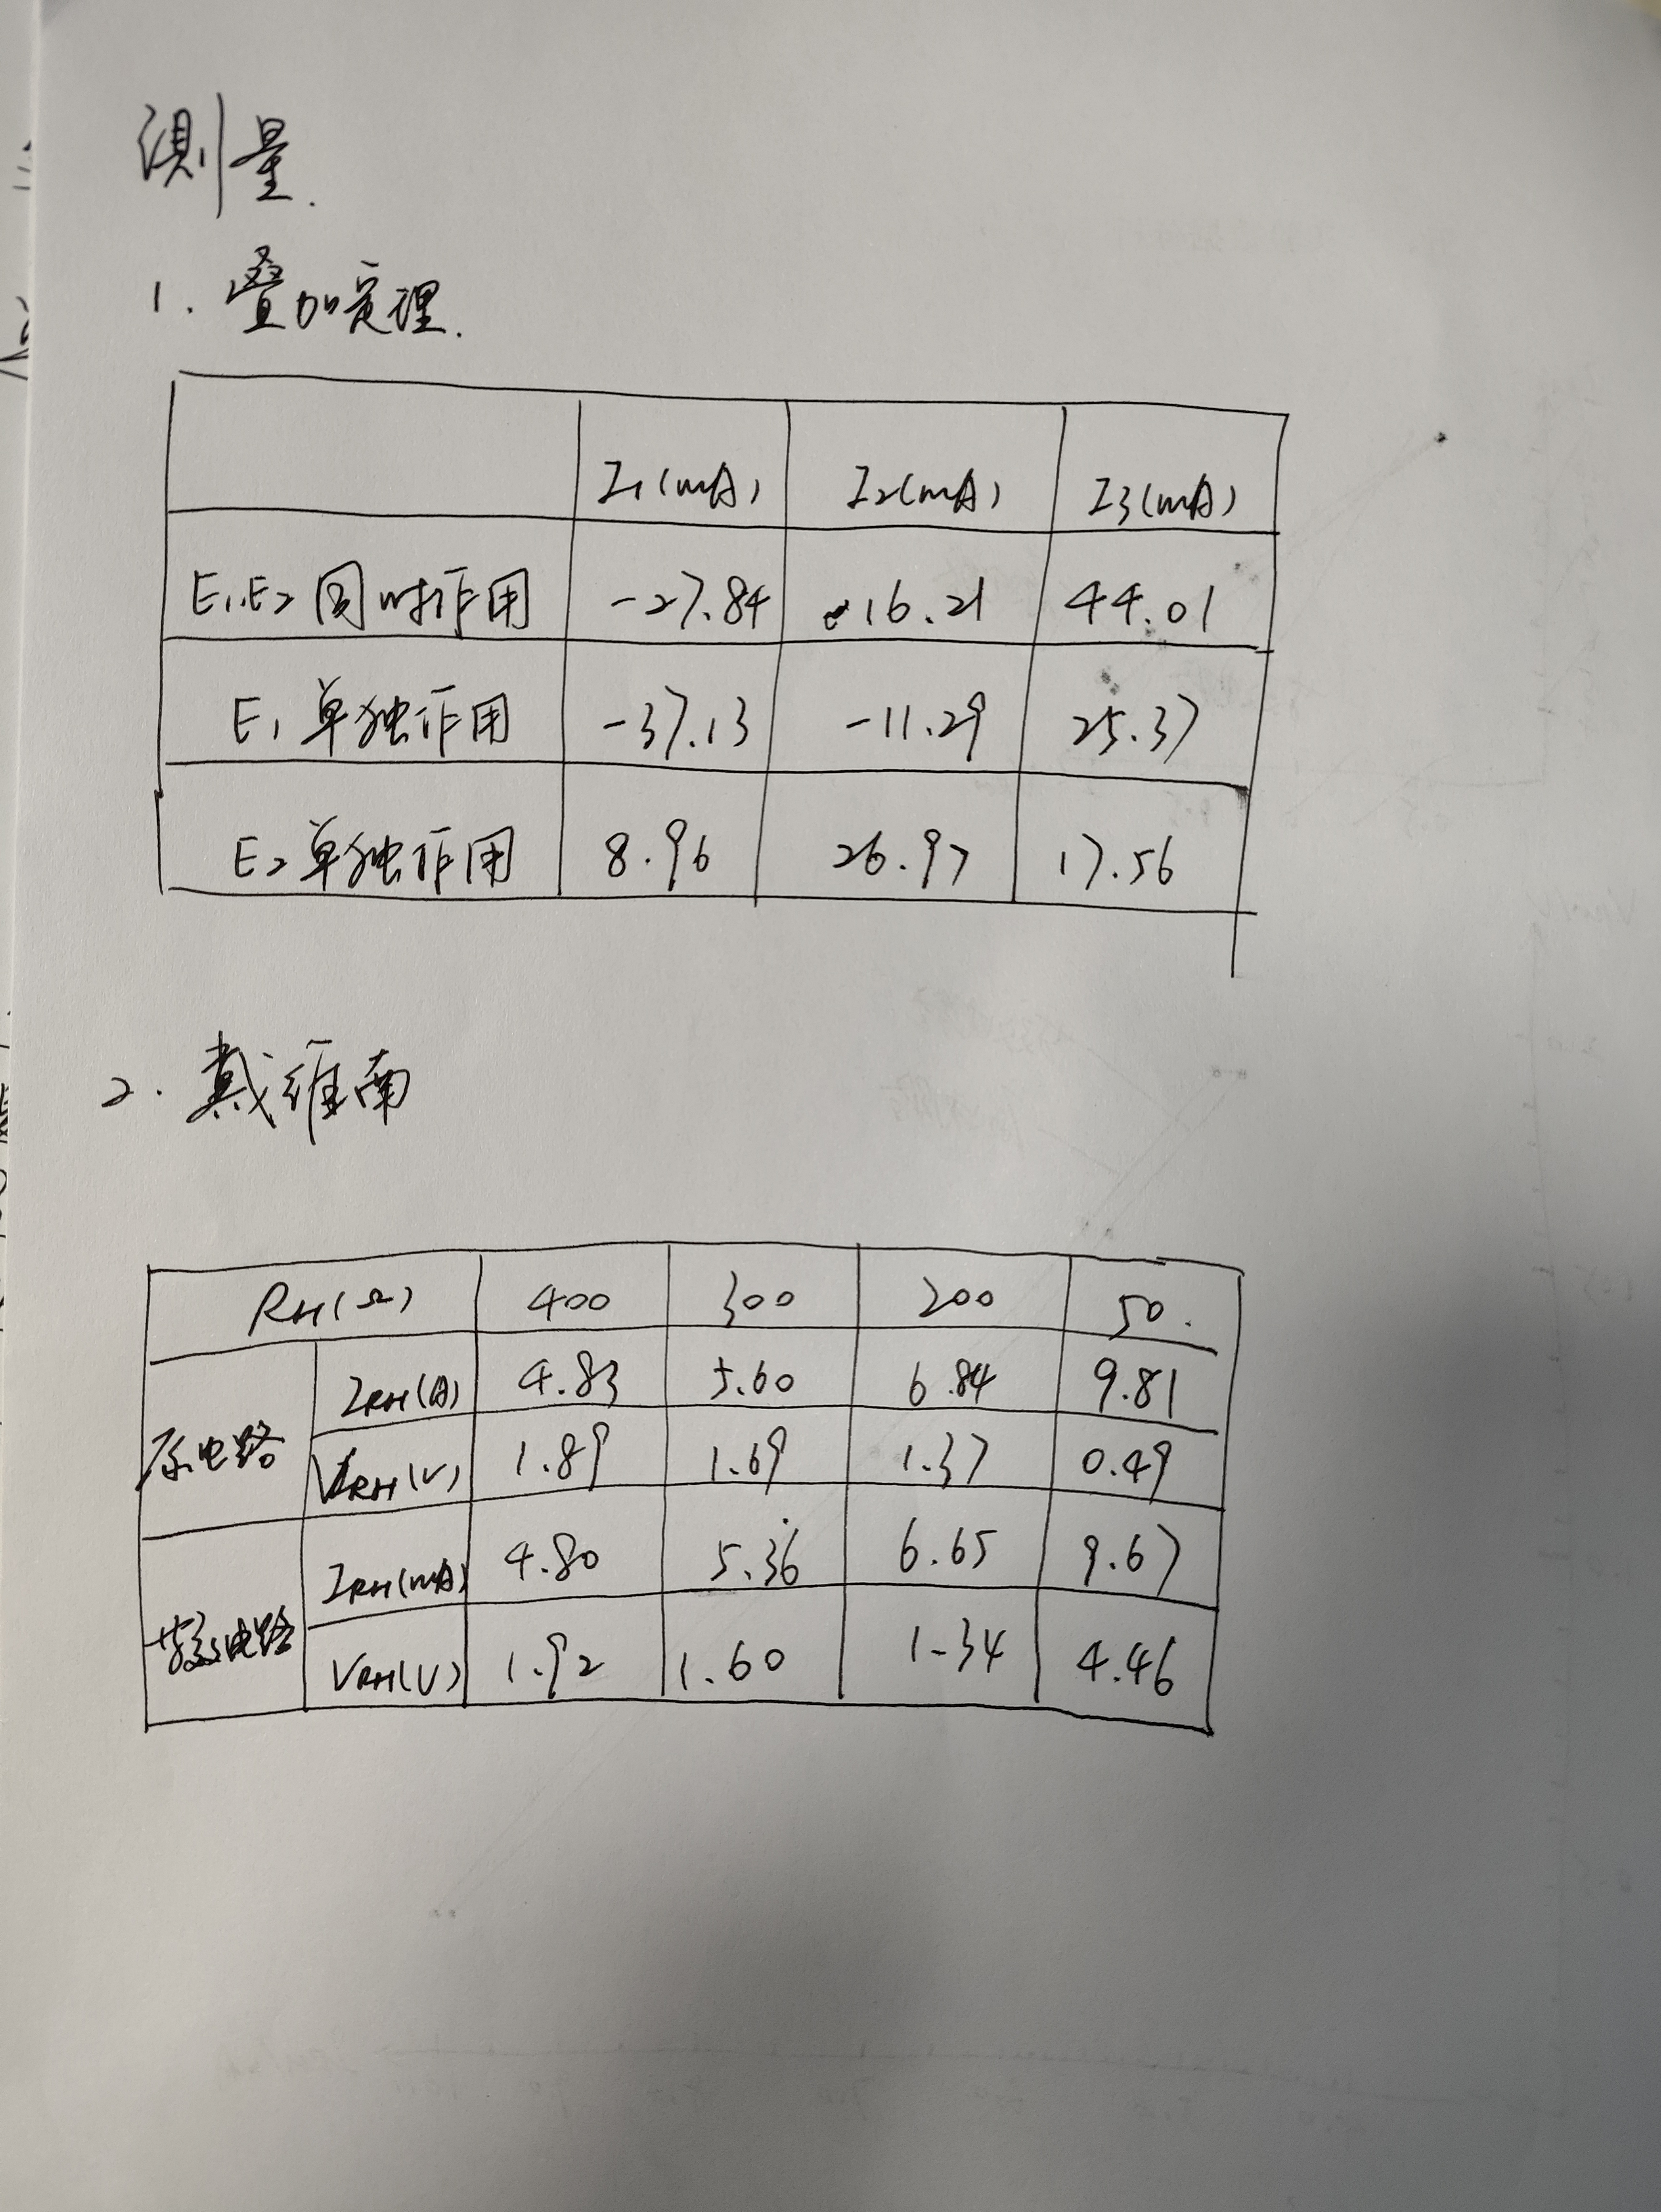 测量.
1. 叠加定理.
I1(mA) I2(mA) I3(mA)
E1.E2同时作用 -27.84 16.21 44.01
E1单独作用 -37.13 -11.29 25.37
E2单独作用 8.96 26.97 17.56
2. 戴维南
RH(Ω) 400 300 200 50.
原电路 IRH(A) 4.83 5.60 6.84 9.81
VRH(V) 1.89 1.69 1.37 0.49
IRH(mA) 4.80 5.36 6.65 9.67
电路 VRH(V) 1.92 1.60 1-34 4.46